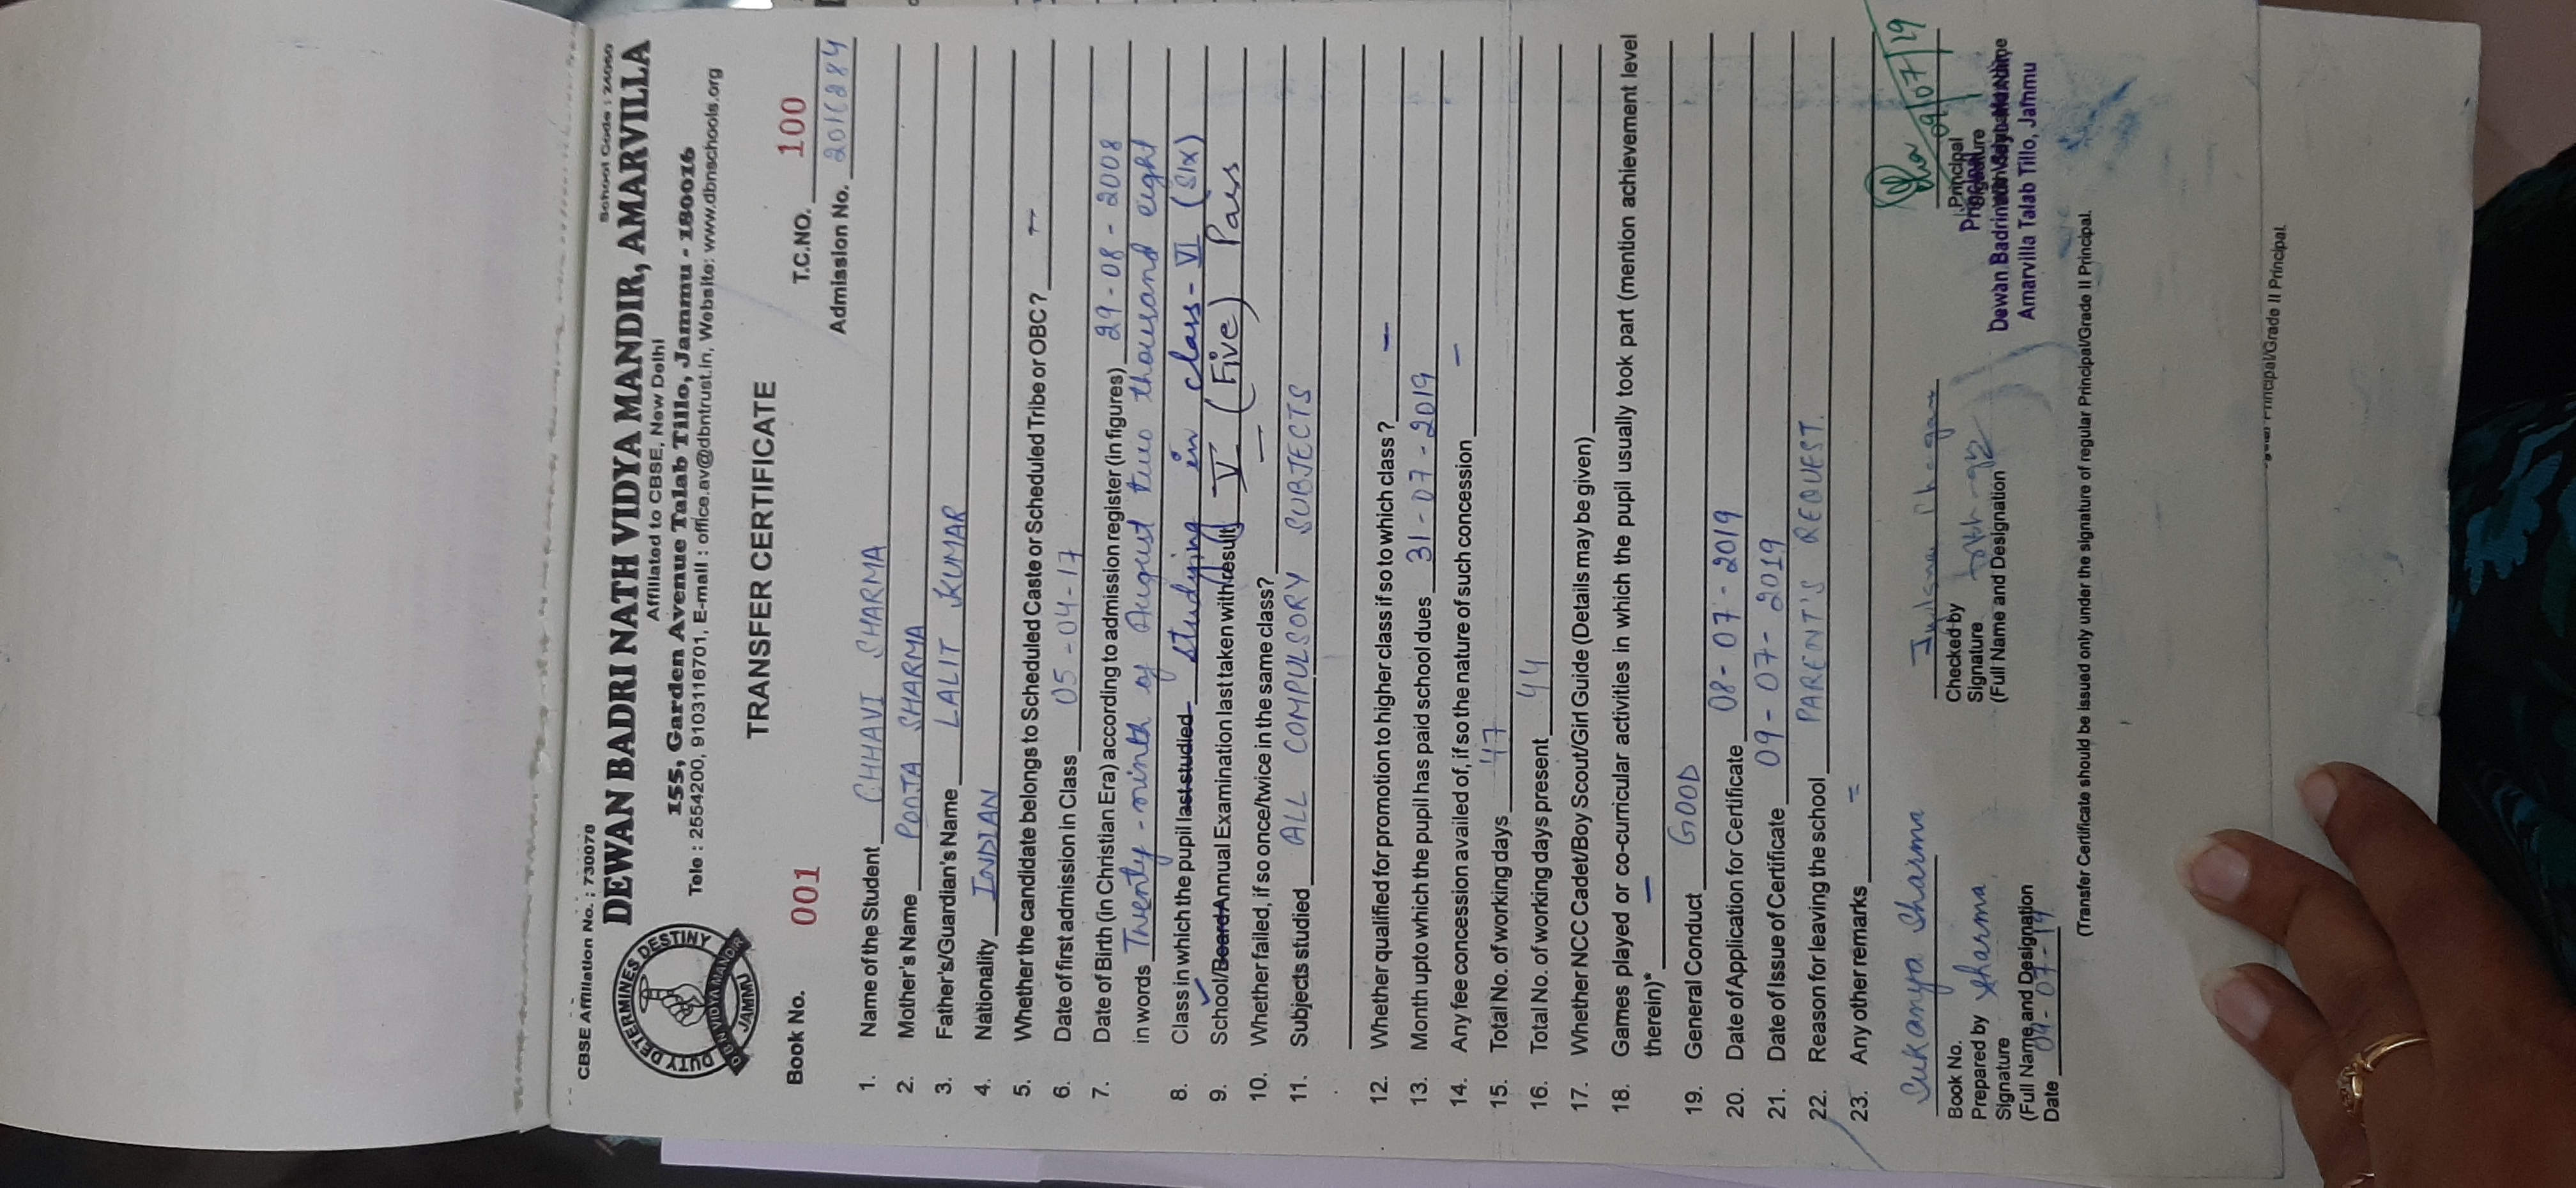 CBSE Affiliation No. : 730078 School Code : 24060
DEWAN BADRI NATH VIDYA MANDIR, AMARVILLA
Affiliated to CBSE, New Delhi
155, Garden Avenue Talab Tillo, Jammu - 180016
Tele : 2554200, 9103116701, E-mail : office.av@dbntrust.in, Website: www.dbnschools.org
DUTY DETERMINES DESTINY
D.B.N VIDYA MANDIR
JAMMU
TRANSFER CERTIFICATE
Book No. 001 T.C.NO. 100
Admission No. 2016284
1. Name of the Student CHHAVI SHARMA
2. Mother's Name POOJA SHARMA
3. Father's/Guardian's Name LALIT KUMAR
4. Nationality INDIAN
5. Whether the candidate belongs to Scheduled Caste or Scheduled Tribe or OBC? -
6. Date of first admission in Class 05-04-17
7. Date of Birth (in Christian Era) according to admission register (in figures) 29-08-2008
in words Twenty-ninth of August two thousand eight
8. Class in which the pupil last studied studying in class - VI (Six)
9. School/Board Annual Examination last taken with result V (Five) Pass
10. Whether failed, if so once/twice in the same class? -
11. Subjects studied ALL COMPULSORY SUBJECTS
12. Whether qualified for promotion to higher class if so to which class? -
13. Month upto which the pupil has paid school dues 31-07-2019
14. Any fee concession availed of, if so the nature of such concession -
15. Total No. of working days 47
16. Total No. of working days present 44
17. Whether NCC Cadet/Boy Scout/Girl Guide (Details may be given)
18. Games played or co-curricular activities in which the pupil usually took part (mention achievement level
therein)* -
19. General Conduct GOOD
20. Date of Application for Certificate 08-07-2019
21. Date of Issue of Certificate 09-07-2019
22. Reason for leaving the school PARENT'S REQUEST.
23. Any other remarks =
Sukanya Sharma 09/07/19
Book No. Checked by Principal
Prepared by Sharma Signature Signature
Signature (Full Name and Designation Principal
(Full Name and Designation Dewan Badrinath Vidya Mandir
Date 09-07-19 Amarvilla Talab Tillo, Jammu
(Transfer Certificate should be issued only under the signature of regular Principal/Grade II Principal.
Principal/Grade II Principal.